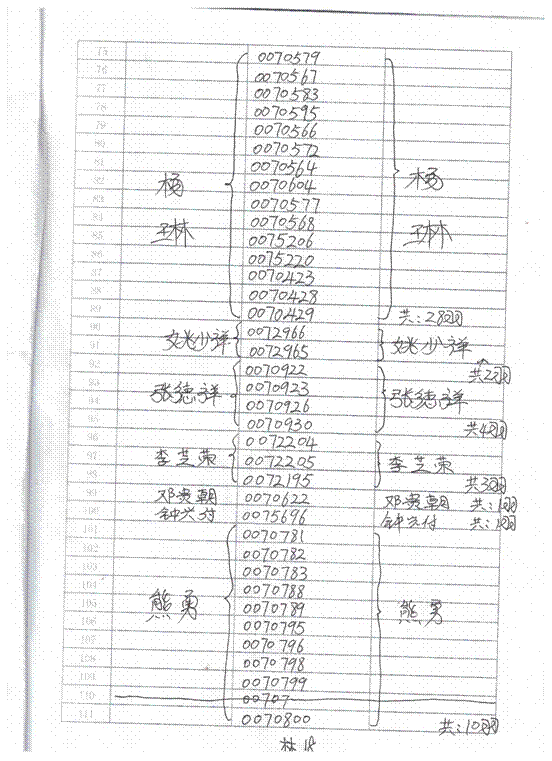 75 0070579
76 0070567
77 0070583
78 0070595
79 0070566
80 0070572
81 0070564
82 杨 0070604 杨
83 0070577
84 0070568
85 琳 0075206 琳
86 0075220
87 0070423
88 0070428
89 0070429 共:28羽
90 姚少祥 0072966
91 0072965 姚少祥
92 0070922 共2羽
93 张德祥 0070923 张德祥
94 0070926
95 0070930 共4羽
96 0072204
97 李芝荣 0072205 李芝荣
98 0072195 共3羽
99 邓贵朝 0070622 邓贵朝 共:1羽
100 钟兴付 0075696 钟兴付 共:1羽
101 0070781
102 0070782
103 0070783
104 0070788
105 熊勇 0070789 熊勇
106 0070795
107 0070796
108 0070798
109 0070799
110 00707
111 0070800 共:10羽